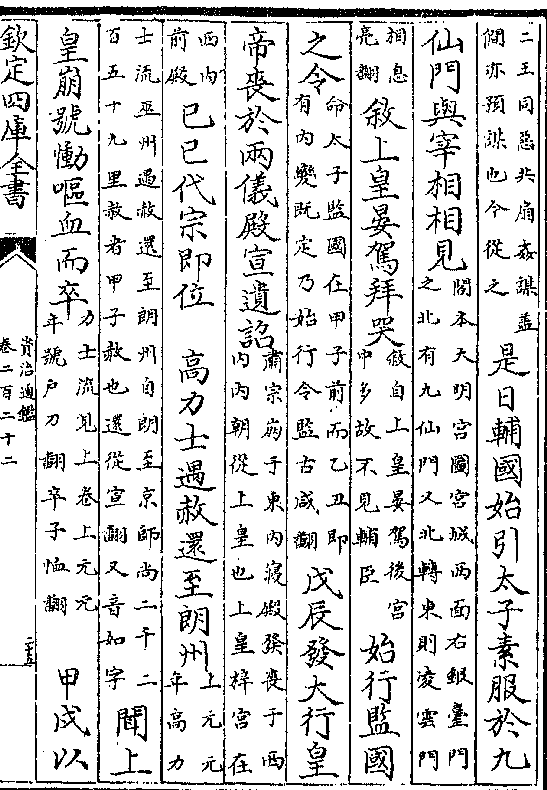 二王同惡共扇姦謀蓋
閒亦預謀也今從之
是日輔國始引太子素服於九
仙門與宰相相見
閣本大明宮圖宮城西面右銀臺門
之北有九仙門又北轉東則凌雲門
相息
亮翻
敘上皇晏駕拜哭
敘自上皇晏駕後宮
中多故不見輔臣
始行監國
之令
命太子監國在甲子前而乙丑即
有内變既定乃始行令監古咸翻
戊辰發大行皇
帝喪於兩儀殿宣遺詔
肅宗病于東内寢殿發喪于西
内内朝從上皇也上皇梓宮在
西内
前殿
己巳代宗即位
高力士遇赦還至朗州
上元元
年高力
士流巫州遇赦還至朗州自朗至京師尚二千二
百五十九里赦者甲子赦也還從宣翻又音如字
聞上
皇崩號慟嘔血而卒
力士流見上卷上元元
年號戶刀翻卒子恤翻
甲戌以
欽定四庫全書
資治通鑑
卷二百二十二